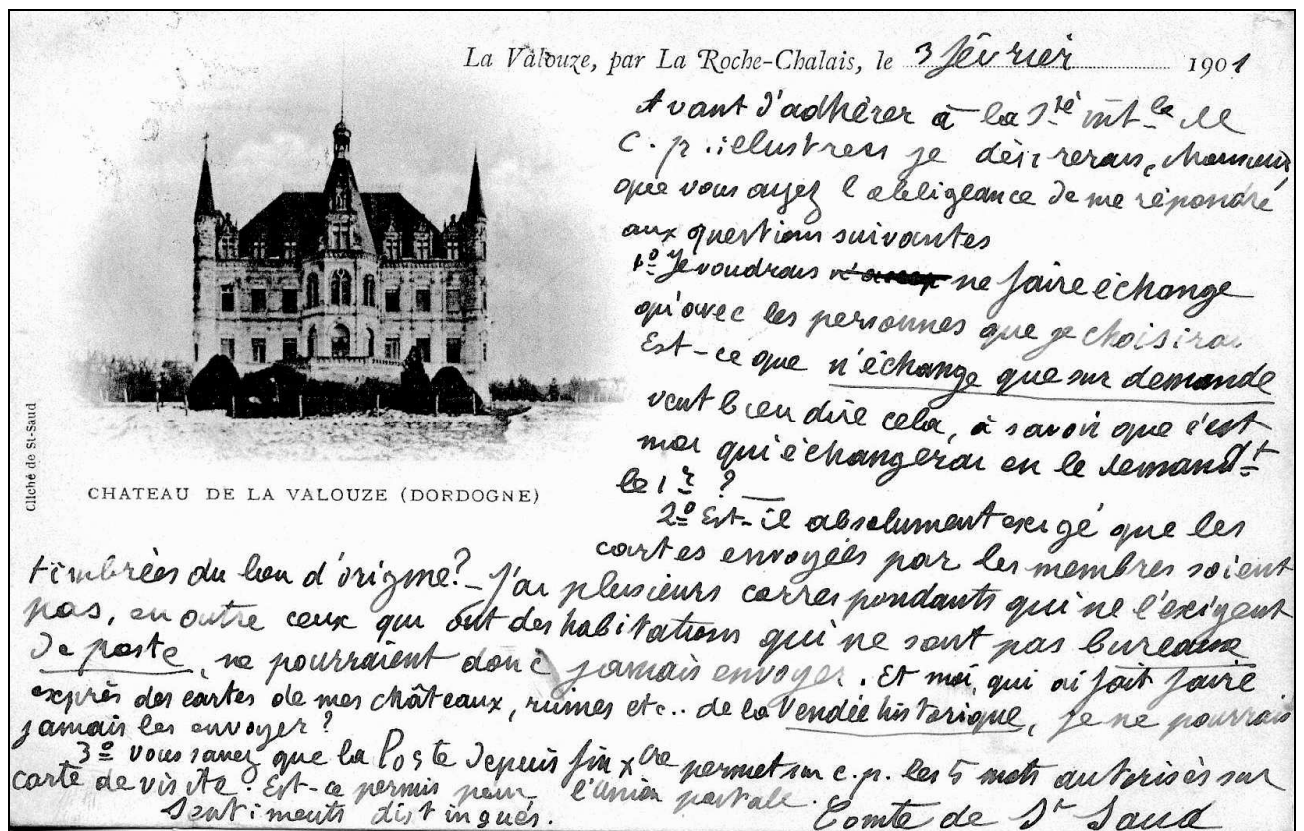 La Valouze, par La Roche-Chalais, le 3 février 1901
Avant d'adhérer à la Sté int-le de
C. p. illustrées je désirerais, Monsieur,
que vous ayez l'obligeance de me répondre
aux questions suivantes
1º Je voudrais ne faire échange
qu'avec les personnes que je choisirai
Est-ce que n'échange que sur demande
veut bien dire cela, à savoir que c'est
moi qui échangerai en le demandt
le 1r ?
2º Est-il absolument exigé que les
cartes envoyées par les membres soient
timbrées du lieu d'origine? - J'ai plusieurs correspondants qui ne l'exigent
pas, en outre ceux qui ont des habitations qui ne sont pas bureaux
de poste, ne pourraient donc jamais envoyer. Et moi, qui ai fait faire
exprès des cartes de mes châteaux, ruines etc.. de la Vendée historique, je ne pourrais
jamais les envoyer ?
3º Vous savez que la Poste depuis fin Xbre permet sur c.p. les 5 mots autorisés sur
carte de visite. Est-ce permis pour l'Union postale.
Sentiments distingués.
Comte de St Saud
CHATEAU DE LA VALOUZE (DORDOGNE)
Cliché de St-Saud